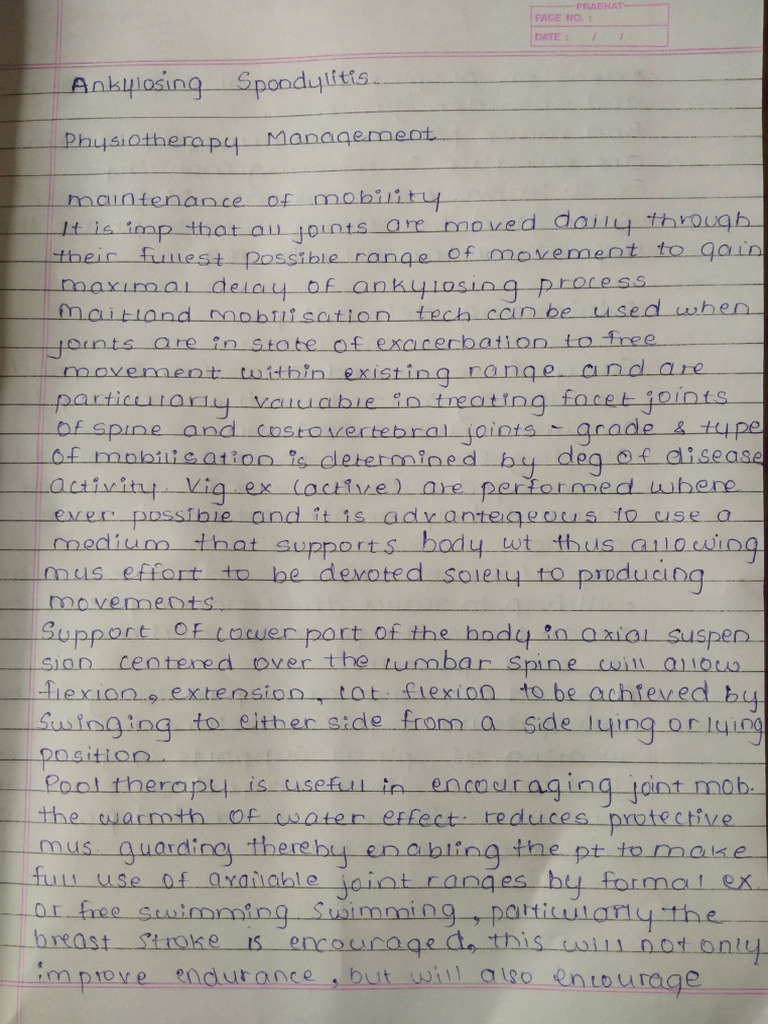 PRABHAT
PAGE NO. :
DATE : / /
Ankylosing Spondylitis
Physiotherapy Management
maintenance of mobility
It is imp that all joints are moved daily through
their fullest possible range of movement to gain
maximal delay of ankylosing process
Maitland mobilisation tech can be used when
joints are in state of exacerbation to free
movement within existing range and are
particularly valuable in treating facet joints
of spine and costovertebral joints - grade & type
of mobilisation is determined by deg of disease
activity. Vig ex (active) are performed where
ever possible and it is advantageous to use a
medium that supports body wt thus allowing
mus effort to be devoted solely to producing
movements.
Support of lower part of the body in axial suspen
sion centered over the lumbar spine will allow
flexion, extension, lat. flexion to be achieved by
swinging to either side from a side lying or lying
position.
Pool therapy is useful in encouraging joint mob.
the warmth of water effect. reduces protective
mus. guarding thereby enabling the pt to make
full use of available joint ranges by formal ex.
or free swimming swimming, particularly the
breast stroke is encouraged, this will not only
improve endurance, but will also encourage